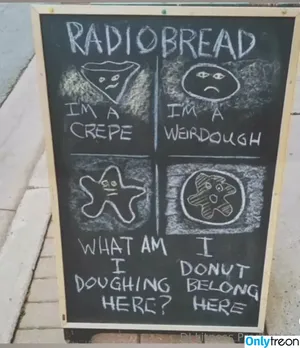 RADIOBREAD
I'M A
CREPE
I'M A
WEIRDOUGH
WHAT AM
I
DOUGHING
HERE?
I
DONUT
BELONG
HERE
Onlytreon